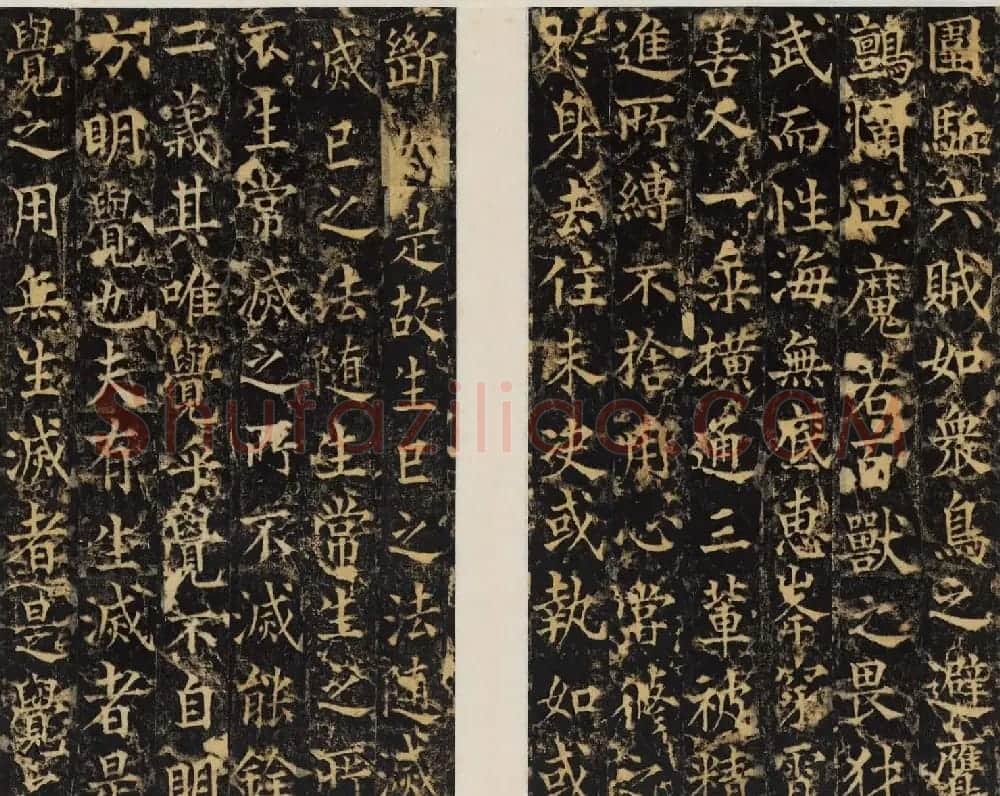 圍駈六賊如衆鳥之避鷹
鸇四魔若百獸之畏犲
武而性海無底惠峯窮
善大一乗撗通三輩被精
進所縛不捨用心常之
於身去住未决或執如或
斷是故生已之法随滅
滅已之法随生常生之所
不生常滅之所不滅能銓
二義其唯覺乎覺不自明
方明覺也夫有生滅者是
覺之用無生滅者是覺之
Shufaziliao.COM